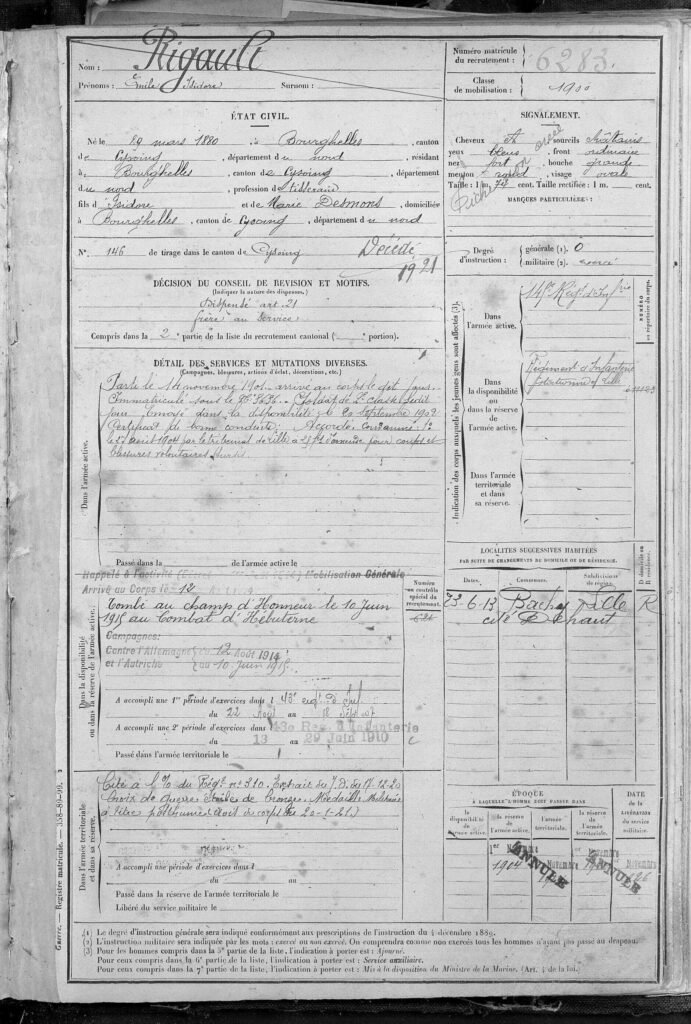 Nom : Rigault
Prénoms : Émile Isidore Surnom :
Numéro matricule du recrutement : 6283.
Classe de mobilisation : 1900
ÉTAT CIVIL.
Né le 29 mars 1880, à Bourghelles, canton
de Cysoing, département du nord, résidant
à Bourghelles, canton de Cysoing, département
du nord, profession de
fils d'Isidore et de Marie Desmons, domiciliés
à Bourghelles, canton de Cysoing, département du nord
N° 146 de tirage dans le canton de Cysoing
Décédé
1921
SIGNALEMENT.
Cheveux et sourcils châtains
yeux bleus, front ordinaire
nez fort, bouche grande
menton rond, visage ovale
Taille : 1 m. cent. Taille rectifiée : 1 m. cent.
MARQUES PARTICULIÈRES :
Degré d'instruction :
générale (1). 0
militaire (2). exercé
DÉCISION DU CONSEIL DE REVISION ET MOTIFS.
(Indiquer la nature des dispenses.)
Dispensé art. 21
frère au service
Compris dans la 2e partie de la liste du recrutement cantonal ( portion).
DÉTAIL DES SERVICES ET MUTATIONS DIVERSES.
(Campagnes, blessures, actions d'éclat, décorations, etc.)
Dans l'armée active.
Parti le 14 novembre 1901, arrivé au corps le dit jour.
Immatriculé sous le N° Soldat de 2e classe ledit
jour Envoyé dans la disponibilité le 20 Septembre 1902
Certificat de bonne conduite : Accordé. Condamné le
27 avril 1904 par le tribunal de Lille à 25f d'amende pour coups et
blessures volontaires
Passé dans la de l'armée active le
Indication des corps auxquels les jeunes gens sont affectés (3).
Dans l'armée active.
NUMÉRO au répertoire du corps.
Dans la disponibilité ou dans la réserve de l'armée active.
Régiment d'Infanterie
stationné à Lille
Dans l'armée territoriale et dans sa réserve.
Dans la disponibilité ou dans la réserve de l'armée active.
Rappelé à l'activité Mobilisation Générale
Arrivé au Corps le 12
Tombé au champ d'Honneur le 10 Juin
1915 au Combat d'Hébuterne
Campagnes:
Contre l'Allemagne du 12 Août 1914
et l'Autriche au 10 Juin 1915
Numéro au contrôle spécial du recrutement.
A accompli une 1re période d'exercices dans le 43e regt d'Inf.
du 22 Août au 18 Sept 07
A accompli une 2e période d'exercices dans le 43e Rég. d'Infanterie
du 13 au 29 Juin 1910
Passé dans l'armée territoriale le
LOCALITÉS SUCCESSIVES HABITÉES
PAR SUITE DE CHANGEMENTS DE DOMICILE OU DE RÉSIDENCE.
Dates. Communes. Subdivisions de région. D domicile ou R résidence.
23-6-13 Bachy Lille R
cité
Dans l'armée territoriale et dans sa réserve.
Cité à l'O. du Régt n° 310. Extrait du J.O. du 17-12-20
Croix de guerre Étoile de bronze. Médaille Militaire
à titre posthume
A accompli une période d'exercices dans l
du au
Passé dans la réserve de l'armée territoriale le
Libéré du service militaire le
ÉPOQUE
À LAQUELLE L'HOMME DOIT PASSER DANS
la disponibilité de l'armée active. la réserve de l'armée active. l'armée territoriale. la réserve de l'armée territoriale.
DATE DE LA LIBÉRATION du service militaire.
1er Novembre 1904
ANNULÉ
Novembre
ANNULÉ
Novembre
(1) Le degré d'instruction générale sera indiqué conformément aux prescriptions de l'instruction du 4 décembre 1889.
(2) L'instruction militaire sera indiquée par les mots : exercé ou non exercé. On comprendra comme non exercés tous les hommes n'ayant pas passé au drapeau.
(3) Pour les hommes compris dans la 5e partie de la liste, l'indication à porter est : Ajourné.
Pour ceux compris dans la 6e partie de la liste, l'indication à porter est : Service auxiliaire.
Pour ceux compris dans la 7e partie de la liste, l'indication à porter est : Mis à la disposition du Ministre de la Marine. (Art. 4 de la loi.)
Guerre. — Registre matricule. — 358-89-99.